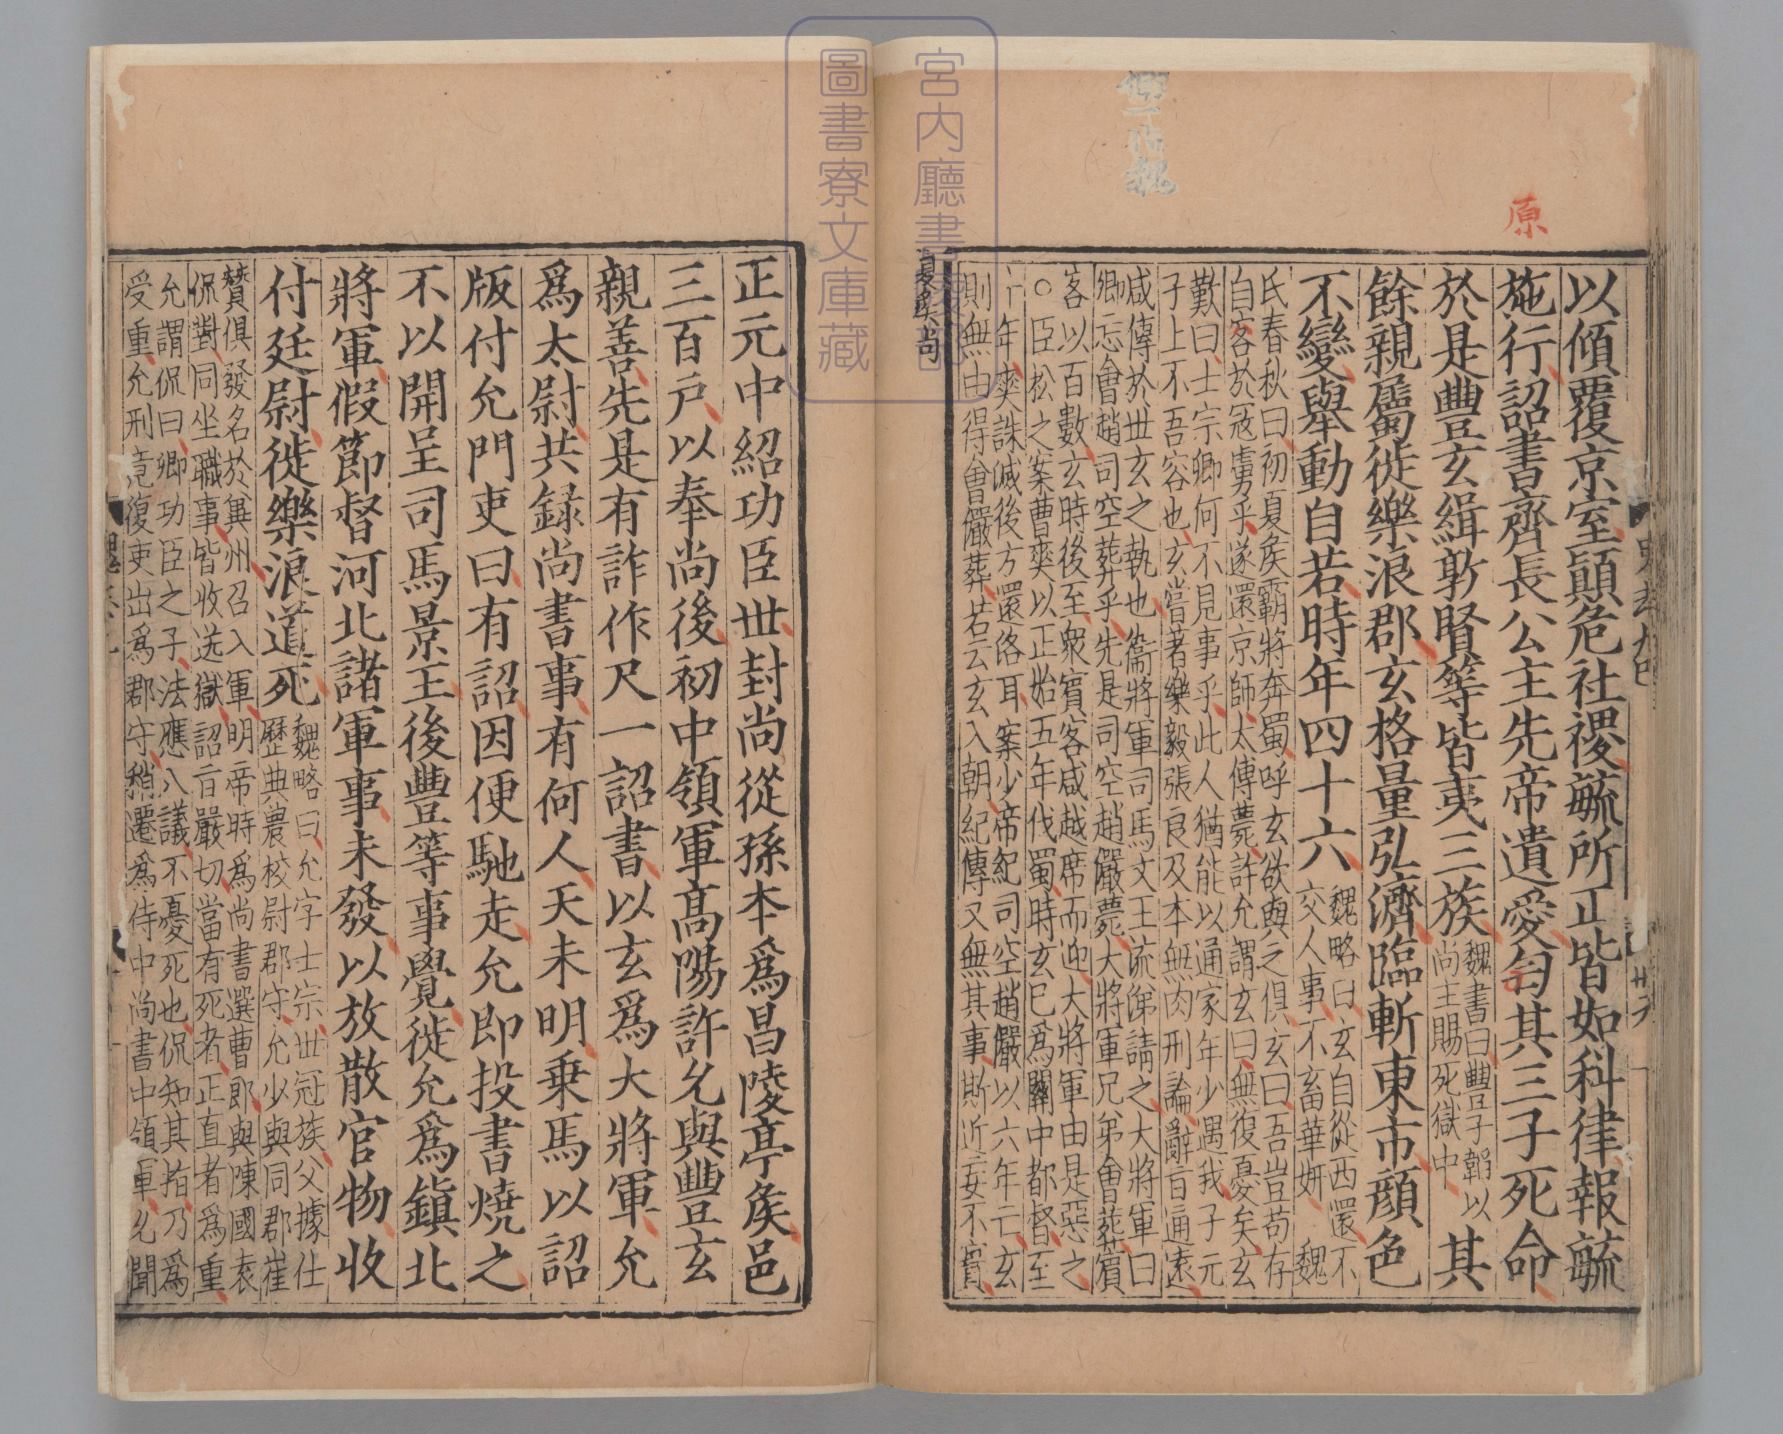 以傾覆京室顛危社稷毓所正皆如科律報毓
施行詔書齊長公主先帝遺愛匄其三子死命
於是豐玄緝敦賢等皆夷三族魏書曰豐子韜以尚主賜死獄中其
餘親屬徙樂浪郡玄格量弘濟臨斬東市顔色
不變舉動自若時年四十六魏略曰玄自從西還不交人事不畜華妍魏
氏春秋曰初夏矦霸將奔蜀呼玄欲與之俱玄曰吾豈苟存
自客於寇虜乎遂還京師太傅薨許允謂玄曰無復憂矣玄
歎曰士宗卿何不見事乎此人猶能以通家年少遇我子元
子上不吾容也玄嘗著樂毅張良及本無肉刑論辭旨通遠
咸傳於世玄之執也衞將軍司馬文王流涕請之大將軍曰
卿忘會趙司空葬乎先是司空趙儼薨大將軍兄弟會葬賓
客以百數玄時後至衆賓客咸越席而迎大將軍由是惡之
○臣松之案曹爽以正始五年伐蜀時玄已爲關中都督至
十年爽誅滅後方還洛耳案少帝紀司空趙儼以六年亡玄
則無由得會儼葬若云玄入朝紀傳又無其事斯近妄不實
夏矦尚
正元中紹功臣世封尚從孫本爲昌陵亭矦邑
三百户以奉尚後初中領軍髙陽許允與豐玄
親善先是有詐作尺一詔書以玄爲大將軍允
爲太尉共録尚書事有何人天未明乗馬以詔
版付允門吏曰有詔因便馳走允即投書燒之
不以開呈司馬景王後豐等事覺徙允爲鎮北
將軍假節督河北諸軍事未發以放散官物收
付廷尉徙樂浪道死魏略曰允字士宗世冠族父據仕歷典農校尉郡守允少與同郡崔
賛俱發名於兾州召入軍明帝時爲尚書選曹郎與陳國袁
侃對同坐職事皆收送獄詔旨嚴切當有死者正直者爲重
允謂侃曰卿功臣之子法應八議不憂死也侃知其指乃爲
受重允刑竟復吏出爲郡守稍遷爲侍中尚書中領軍允聞
原
宮内廳書陵部
圖書寮文庫藏